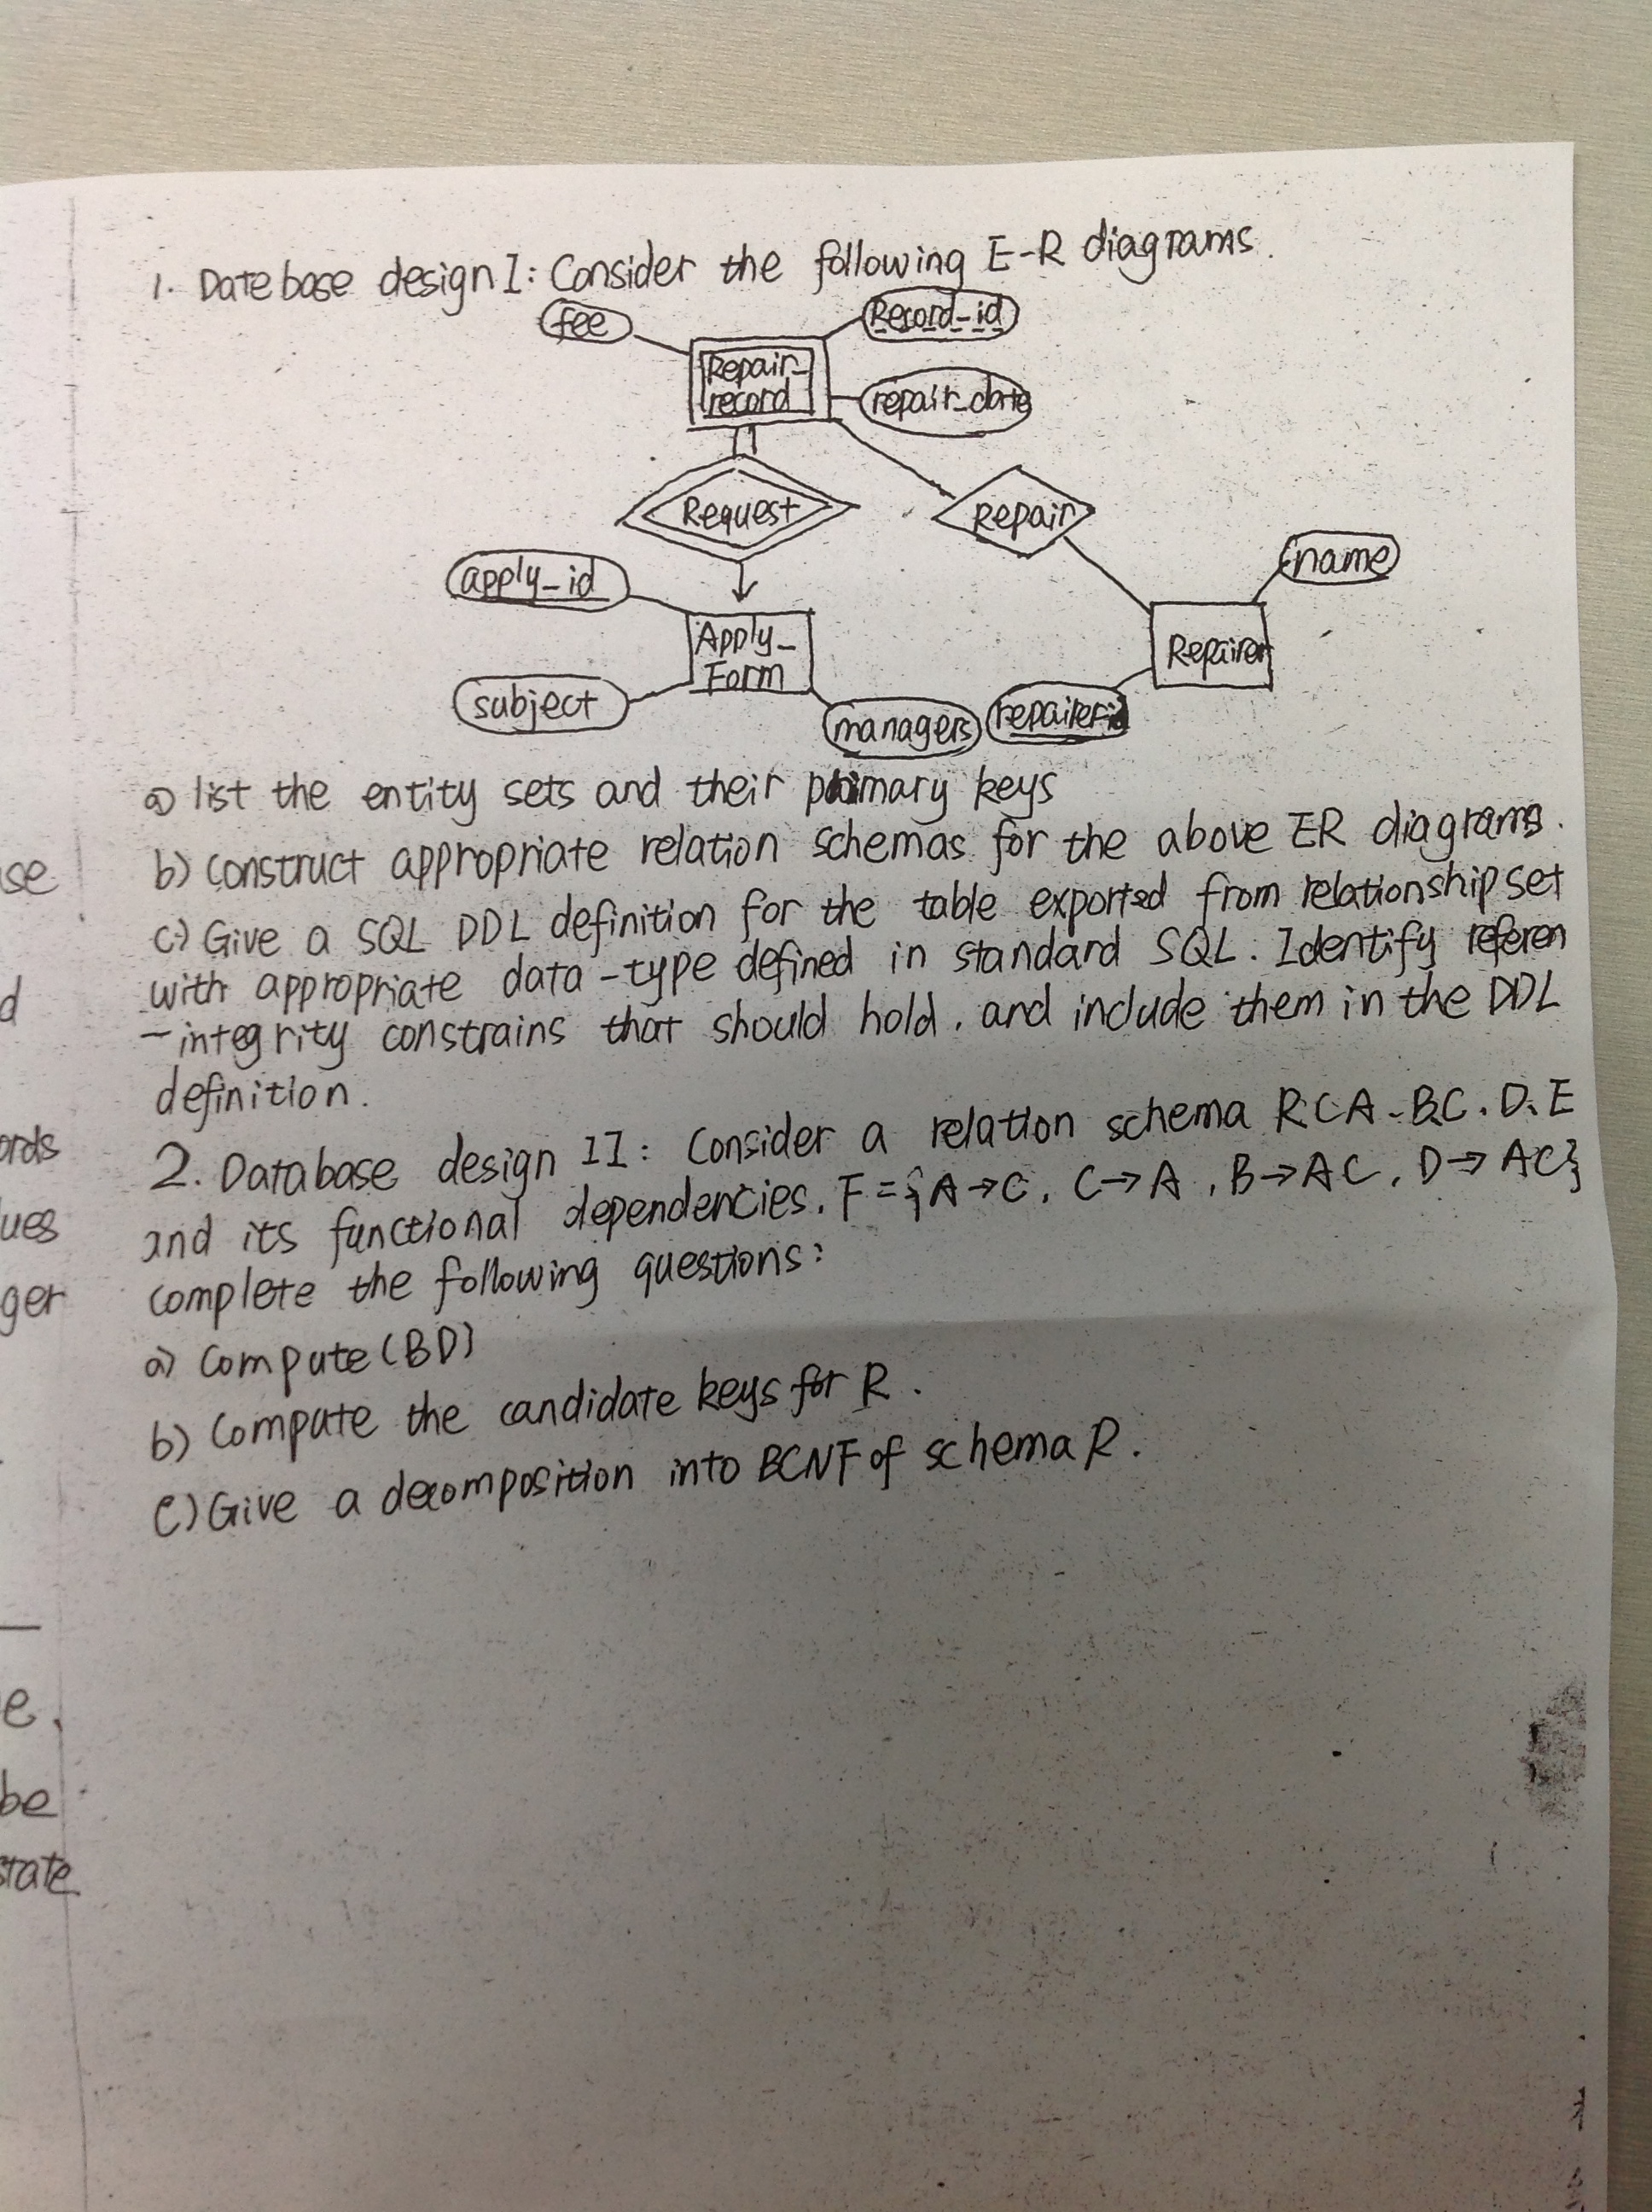 1. Datebase design I: Consider the following E-R diagrams.
fee
Record_id
Repair_
record
repair_date
Request
Repair
apply_id
name
Apply_
Form
Repairer
subject
managers
a) list the entity sets and their primary keys
b) construct appropriate relation schemas for the above ER diagrams.
c) Give a SQL DDL definition for the table exported from relationship set
with appropriate data-type defined in standard SQL. Identify referen
-integrity constrains that should hold, and include them in the DDL
definition.
2. Database design II: Consider a relation schema R(A.B.C.D.E
and its functional dependencies. F={A→C, C→A, B→AC, D→AC}
complete the following questions:
a) Compute (BD)
b) Compute the candidate keys for R.
c) Give a decomposition into BCNF of schema R.
se
d
ords
ues
ger
e.
be
state